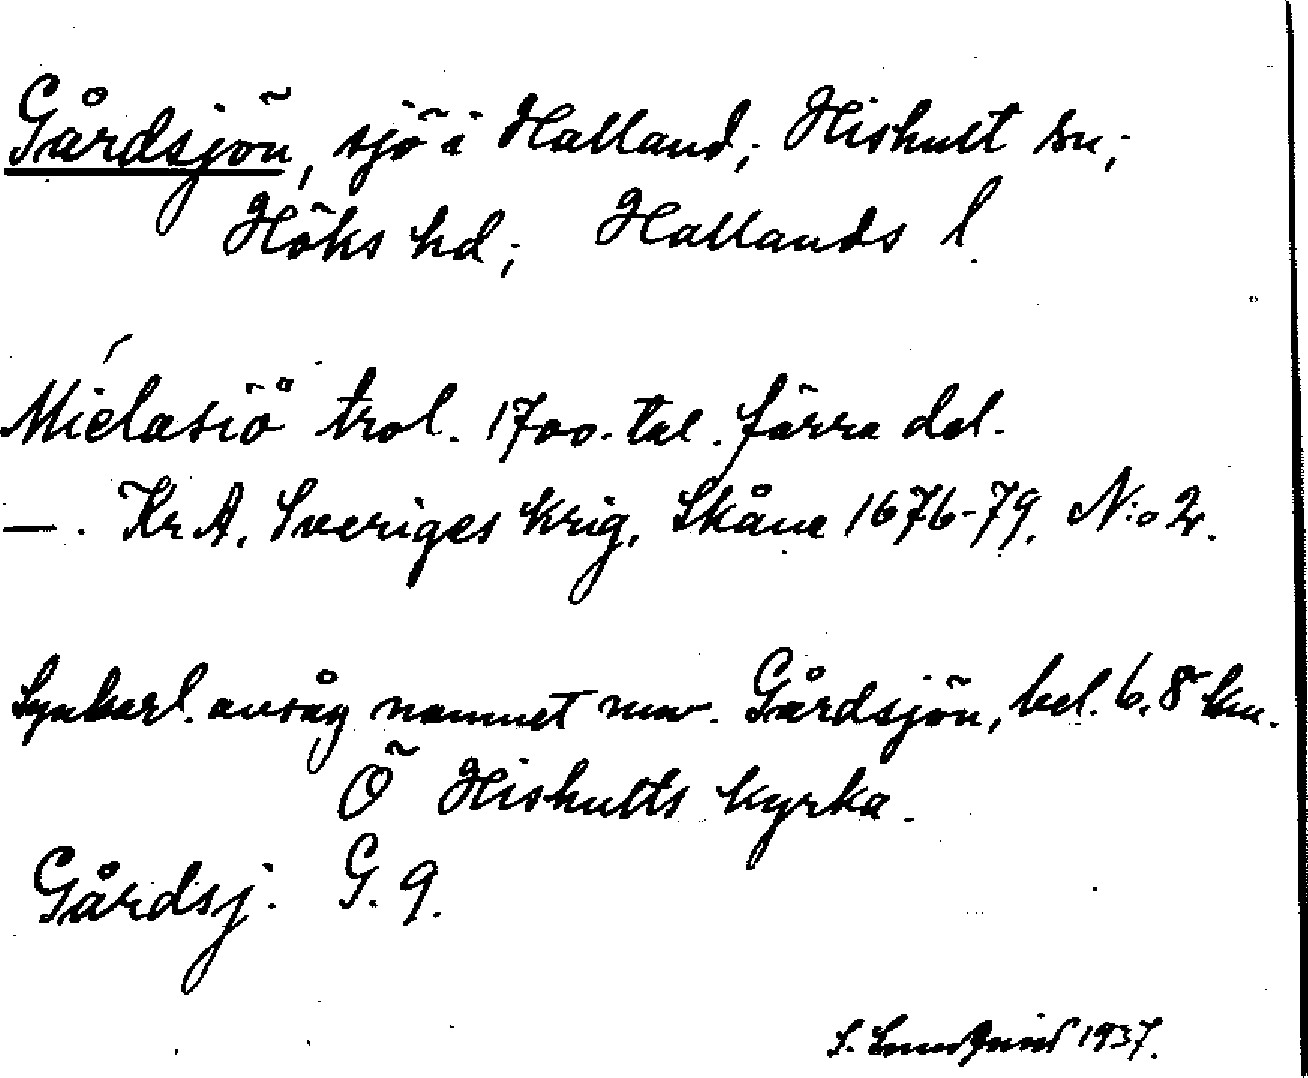 Gårdsjön, sjö i Halland; Hishult sn;
Höks hd; Hallands l.
Mielasiö trol. 1700-tal. förra del.
— . Kr A. Sveriges krig, Skåne 1676-79. N:o 2.
Synbarl. avsåg namnet nuv. Gårdsjön, bel. 6.8 km.
Ö Hishults kyrka.
Gårdsj. G. 9.
S. 1937.